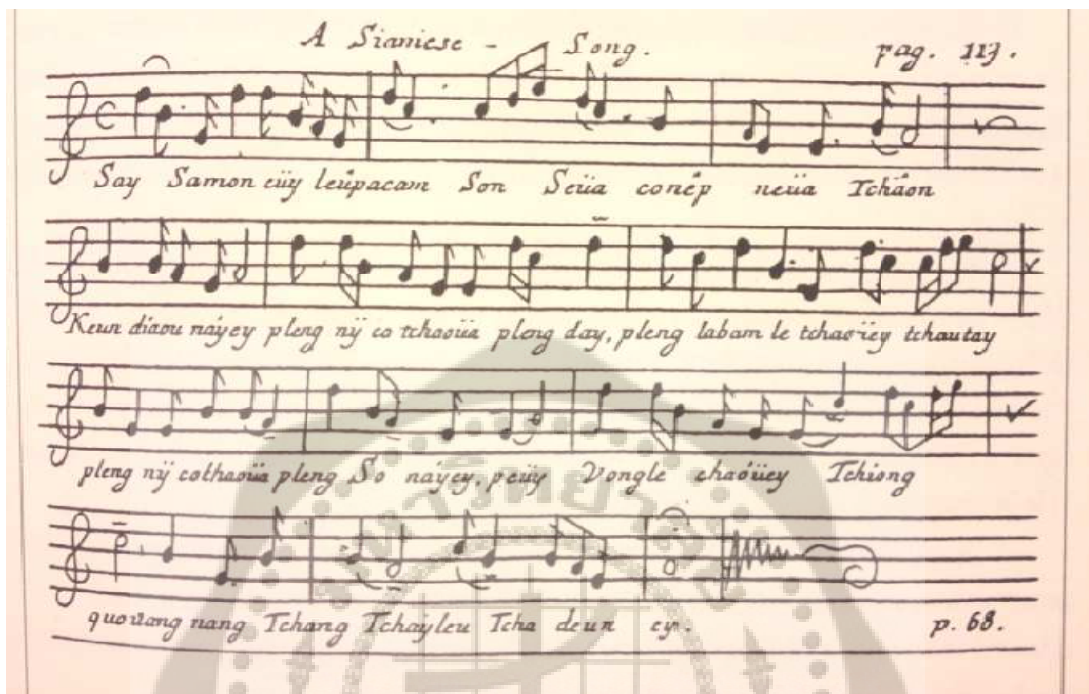 A Siamese - Song. pag. 113.
Say Samon eüy leûpacam Son Seüa conêp neüa Tchâon
Keun diaou náyey pleng nÿ co tchaoüa pleng day, pleng labam le tchaoüey tchautay
pleng nÿ cothaoüa pleng So náyey, peüy Vongle chaóüey Tchiong
quouang nang Tchang Tchayleu Tcha deun ey.
p. 68.